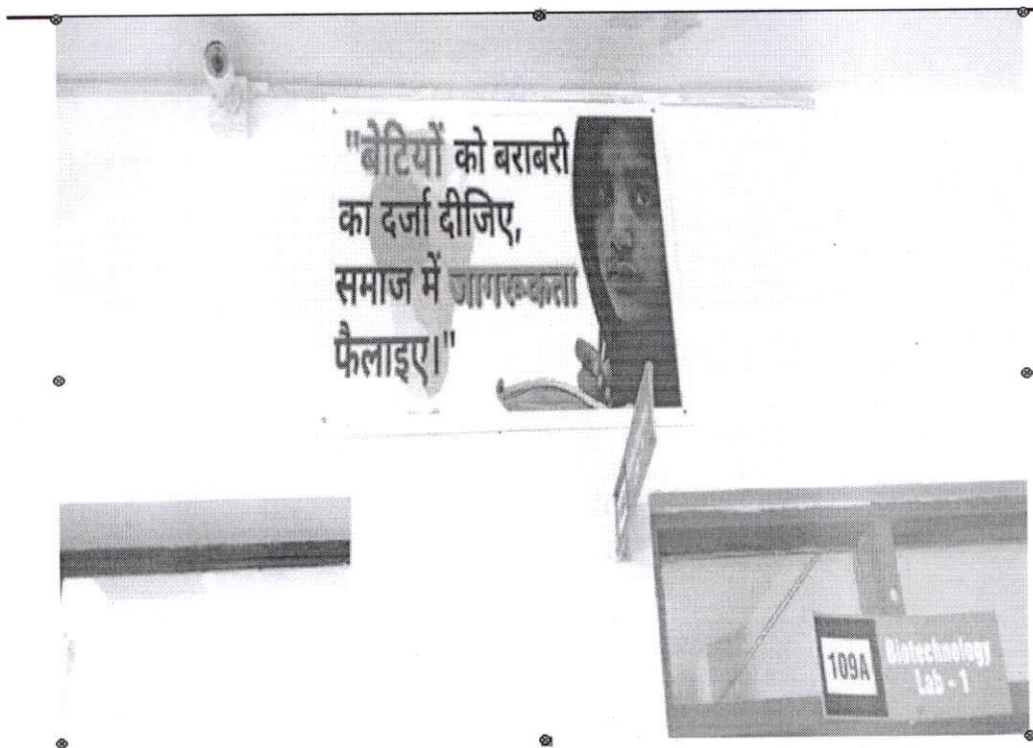 "बेटियों को बराबरी
का दर्जा दीजिए,
समाज में जागरूकता
फैलाइए।"
109A
Biotechnology
Lab - 1